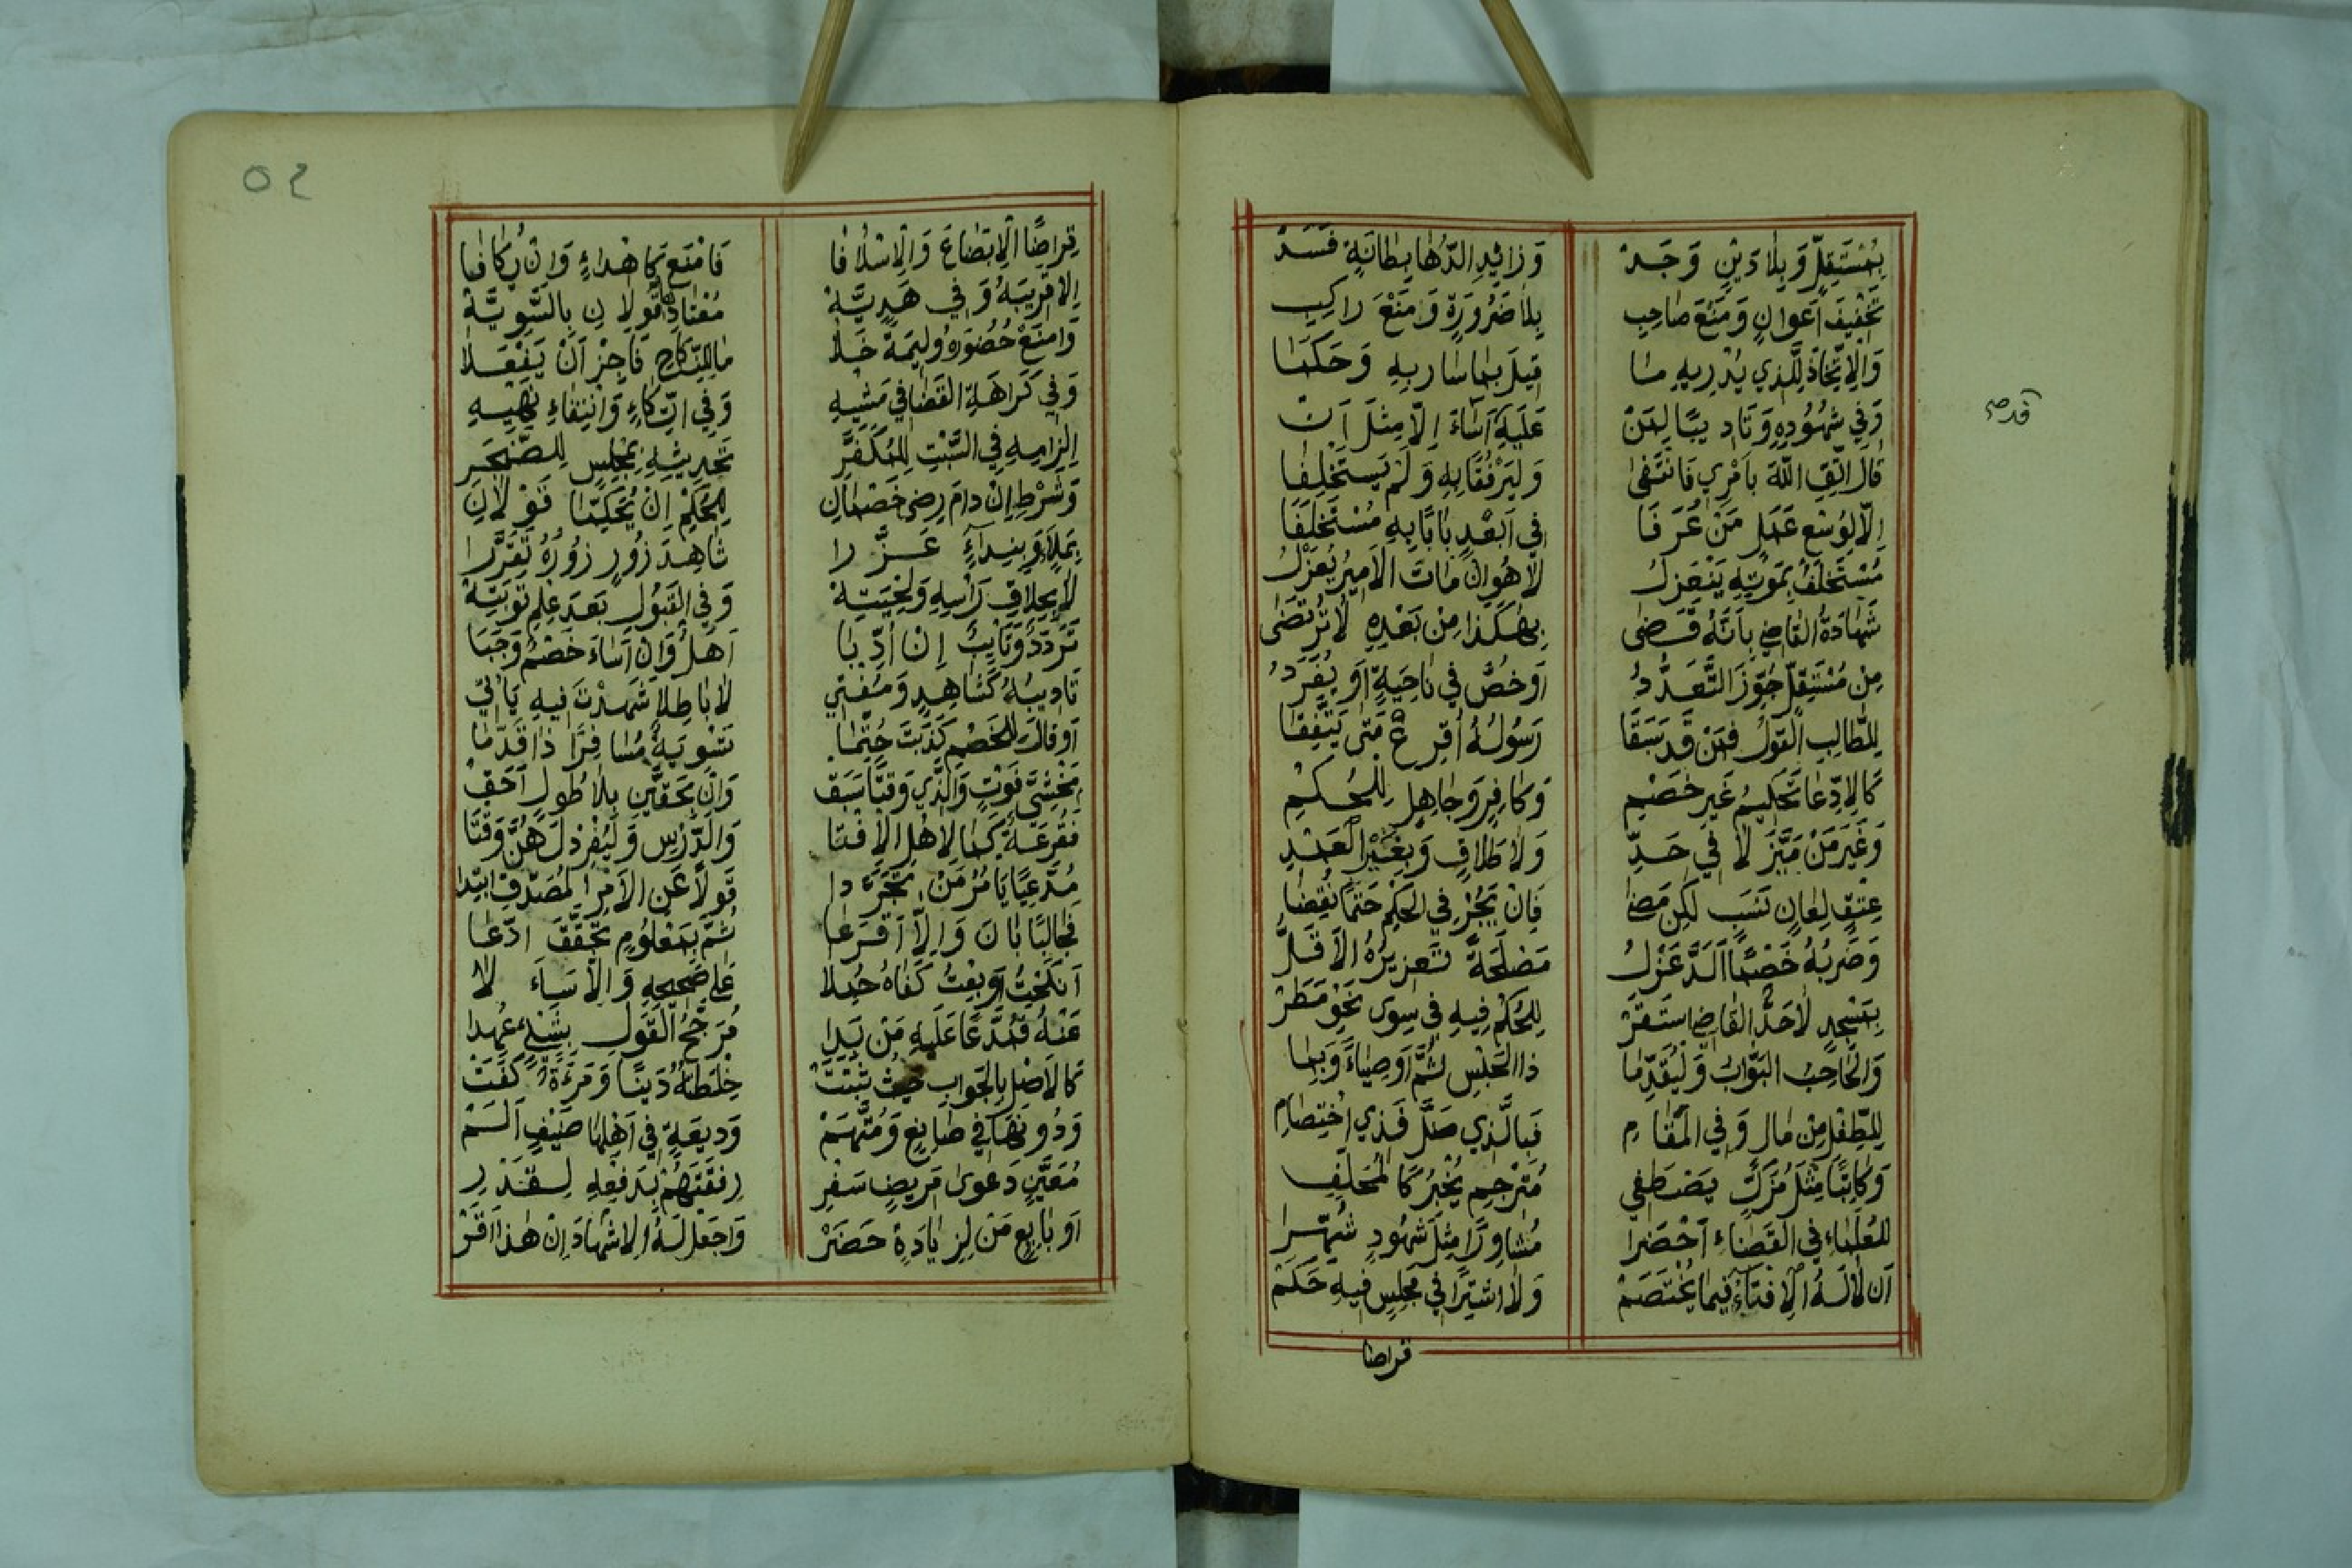 بِمُسْتَقِلٍّ وَبِلَا دَيْنٍ وَجَدْ وَزَائِدِ الدَّهَا بِطَانَةٍ فَسَدْ
تَخْفِيفَ أَعْوَانٍ وَمَنْعَ صَاحِبِ بِلَا ضَرُورَةٍ وَامْنَعْ رَاكِبِ
وَالِاتِّخَاذَ لِلَّذِي يُدْرِيهِ مَا قِيلَ بِمَا سَارَ بِهِ وَحَكَمَا
وَفِي شُهُودِهِ وَتَادِيبًا لِمَنْ عَلَيْهِ أَسَاءَ إِلَّا مِثْلَ أَنْ
قَالَ اتَّقِ اللهَ بِأَمْرِي فَانْتَفَى وَلْيَرْفُقَا بِهِ وَلَمْ يَسْتَخْلِفَا
إِلَّا لِوُسْعِ عَمَلٍ مَنْ عَرَفَا فِي أَبْعَدٍ بَابًا بِهِ مُسْتَخْلَفَا
مُسْتَخْلَفٌ بِمَوْتِهِ يَنْعَزِلُ لَا هُوَ إِنْ مَاتَ الْأَمِيرُ يُعْزَلُ
شَهَادَةُ الْقَاضِي بِأَنَّهُ قَضَى بِهَكَذَا مِنْ بَعْدِهِ لَا تُرْتَضَى
مِنْ مُسْتَقِلٍّ جُوِّزَ التَّعَدُّدُ أَوْ خُصَّ فِي نَاحِيَةٍ أَوْ يُفْرَدُ
لِلطَّالِبِ الْقَوْلُ فَمَنْ قَدْ سَبَقَا رَسُولُهُ أُقْرِعَ مَتَى يَتَّفِقَا
كَالِادِّعَا تَحْكِيمُ غَيْرِ خَصْمِ وَكَافِرٍ وَجَاهِلٍ لِلْحُكْمِ
وَغَيْرِ مَنْ مَيَّزَ لَا فِي حَدِّ وَلَا طَلَاقٍ وَبِغَيْرِ الْعَبْدِ
عِتْقٍ لِعَانٍ نَسَبٍ لَكِنْ مَضَا فَإِنْ يَجُزْ فِي الْحُكْمِ حَتْمًا نُقِضَا
وَضَرْبُهُ خَصْمًا أَلَدَّ عَزْلُ مَصْلَحَةً تَعْزِيزُهُ الْأَقَلُّ
بِمَسْجِدٍ لَا حَدَّ الْقَاضِي اسْتَقَرّْ لِلْحُكْمِ فِيهِ فِي سِوَى نَحْوِ مَطَرْ
وَالْحَاجِبُ الْبَوَّابُ وَلْيُقَدِّمَا ذَا الْحَبْسِ ثُمَّ أَوْصِيَاءَ وَبِمَا
لِلطِّفْلِ مِنْ مَالٍ وَفِي الْمَقَامِ فَبِالَّذِي ضَلَّ فَذِي اخْتِصَامِ
وَكَاتِبًا مِثْلَ مُزَكٍّ يَصْطَفِي مُتَرْجِمٍ يُخْبِرُ كَالْمُحَلِّفِ
لِلْعُلَمَاءِ فِي الْقَضَاءِ أَحْضَرَا مُشَاوِرًا مِثْلَ شُهُودٍ شُهِّرَا
أَنْ لَا لَهُ الْإِفْتَاءُ فِيمَا يُخْتَصَمْ وَلَا اشْتِرَا فِي مَجْلِسٍ فِيهِ حَكَمْ
قدم
قراضا
٥٢
قِرَاضًا الْإِبْضَاعَ وَالْإِسْلَافَا فَامْنَعْ كَإِهْدَاءٍ وَإِنْ يُكَافَا
إِلَّا قَرِيبَهُ وَفِي هَدِيَّةْ مُعْتَادِهَا قَوْلَانِ بِالسَّوِيَّةْ
وَامْنَعْ حُضُورَهُ وَلِيمَةً خَلَا مَا لِلنِّكَاحِ فَأَجِزْ أَنْ يَفْعَلَا
وَفِي كَرَاهَةِ الْقَضَا فِي مَشْيِهِ وَفِي اتِّكَاءٍ وَانْتِفَاءِ نَهْيِهِ
إِلْزَامِهِ فِي السَّبْتِ لِلْمُكَفَّرِ تَحْدِيثِهِ بِمَجْلِسٍ لِلضَّجَرِ
وَشَرْطِ إِنْ دَامَ رِضَى خَصْمَانِ لِلْحُكْمِ إِنْ تَحَكَّمَا قَوْلَانِ
بِمَلَإٍ وَبِنِدَاءٍ عَزَّرَا شَاهِدَ زُورٍ زُورُهُ تَقَرَّرَا
لَا بِحِلَاقِ رَأْسِهِ وَلِحْيَتِهْ وَفِي الْقَبُولِ بَعْدَ عِلْمِ تَوْبَتِهْ
تَرَدُّدٌ وَتَايِبٌ إِنْ أُدِّبَا أَهْلٌ وَإِنْ أَسَاءَ خَصْمٌ وَجَبَا
تَادِيبُهُ كَشَاهِدٍ وَمُفْتِي لَا بَاطِلًا شَهِدْتَ فِيهِ يَأْتِي
أَوْ قَالَ لِلْخَصْمِ كَذَبْتَ حُتِّمَا تَسْوِيَةٌ مُسَافِرًا ذَا قَدِّمَا
يَخْشَى فَوْتٍ وَالَّذِي وَقْتًا سَبَقْ وَإِنْ بِحَقَّيْنِ بِلَا طُولٍ أَحَقّْ
فَقُرْعَةٌ كَمَا لِأَهْلِ الْإِفْتَا وَالدَّرْسِ وَلْيُفْرِدْ لَهُنَّ وَقْتَا
مُدَّعِيًا يَا مُرُ مَنْ تَجَرَّدَا قَوْلًا عَنِ الْأَمْرِ الْمُصَدَّقِ ابْتِدَا
فَجَالِبًا بَانَ وَإِلَّا أَقْرَعَا ثُمَّ بِمَعْلُومٍ تَحَقَّقَ ادَّعَا
أَنْكَحْتُ أَوْ بِعْتُ كَفَاهُ حُمِلَا عَلَى صَحِيحِهِ وَإِلَّا سَاءَلَا
عَنْهُ فَمُدَّعًا عَلَيْهِ مَنْ بَدَا مُرَجِّحُ الْقَوْلِ بِشَيْءٍ عُهِدَا
كَالْأَصْلِ بِالْجَوَابِ حَيْثُ ثَبَتَتْ خِلْطَتُهُ دَيْنًا وَمَرْءَةٌ كَفَتْ
وَدُونَهَا فِي صَانِعٍ وَمُتَّهَمْ وَدِيعَةٍ فِي أَهْلِهَا ضَيْفٍ أَلَمّْ
مُعَيَّنٍ دَعْوَى مَرِيضٍ سَفْرِ رِفْقَتَهُمْ بِدَفْعِهِ لِقَدْرِ
أَوْ بَايِعٍ مَنْ لِزِيَادَةٍ حَضَرْ وَاجْعَلْ لَهُ الْإِشْهَادَ إِنْ هَذَا أَقَرّْ